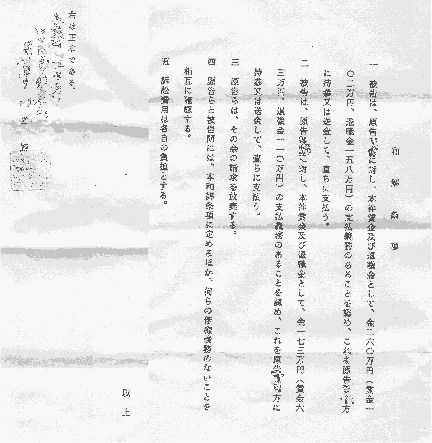 和解条項
一 被告は、原告 に対し、本件賃金及び退職金として、金二六〇万円(賃金一
〇二万円、退職金一五八万円)の支払義務のあることを認め、これを原告 方
に持参又は送金して、直ちに支払う。
二 被告は、原告 に対し、本件賃金及び退職金として、金一七三万円(賃金六
三万円、退職金一一〇万円)の支払義務のあることを認め、これを原告 方に
持参又は送金して、直ちに支払う。
三 原告らは、その余の請求を放棄する。
四 原告らと被告間には、本和解条項に定めるほか、何らの債権債務のないことを
相互に確認する。
五 訴訟費用は各自の負担とする。
以上
右は正本である。